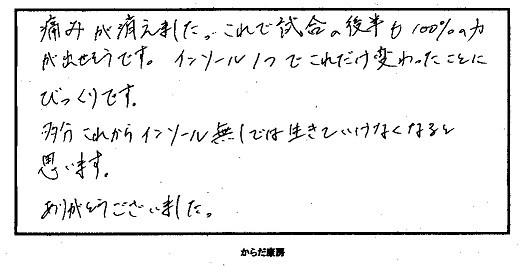 痛みが消えました。これで試合の後半も100%の力
が出せそうです。インソール1つでこれだけ変わったことに
びっくりです。
多分これからインソール無しでは生きていけなくなると
思います。
ありがとうございました。
からだ康房